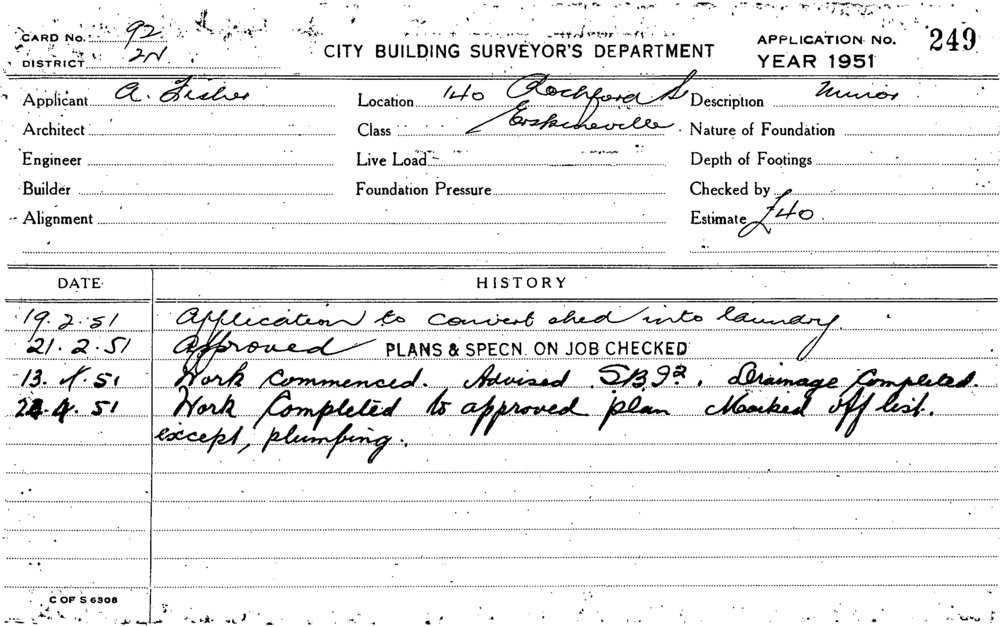 CARD No. 92
DISTRICT 2N
CITY BUILDING SURVEYOR'S DEPARTMENT
APPLICATION No. 249
YEAR 1951
Applicant A. Fisher Location 140 Rochford St Description Minor
Architect Class Erskineville Nature of Foundation
Engineer Live Load Depth of Footings
Builder Foundation Pressure Checked by
Alignment Estimate £40
DATE HISTORY
19.2.51 Application to convert shed into laundry.
21.2.51 Approved PLANS & SPECN. ON JOB CHECKED
13. .51 Work Commenced. Advised . Drainage Completed.
4.51 Work Completed to approved plan Marked off list.
except, plumbing.
C OF S 6308